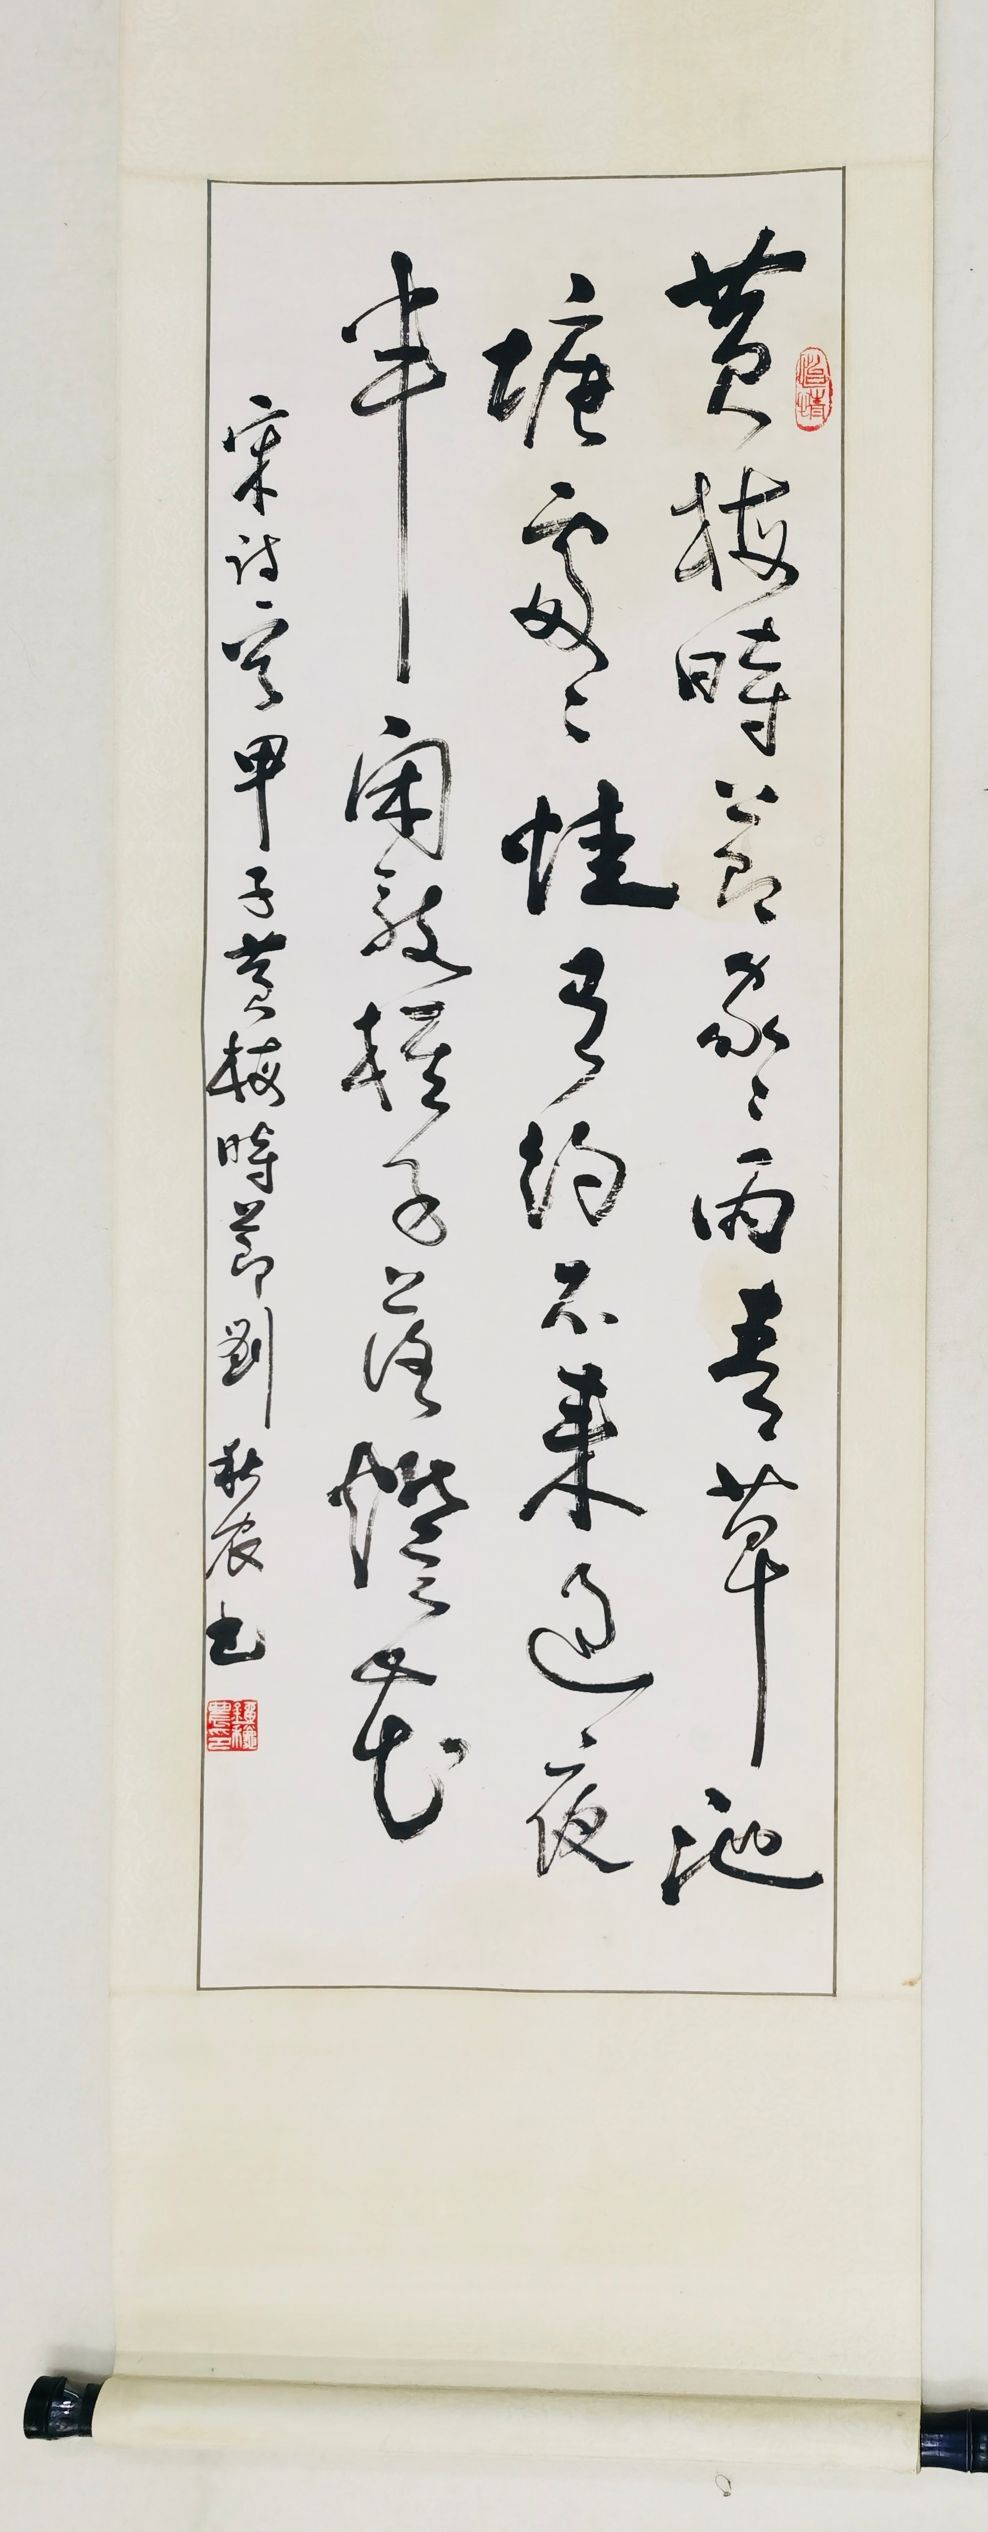 黄梅時節家〻雨青草池
塘處〻蛙有約不来過夜
半閑敲棋子落燈花
宋詩一首甲子黄梅時節劉秋農书